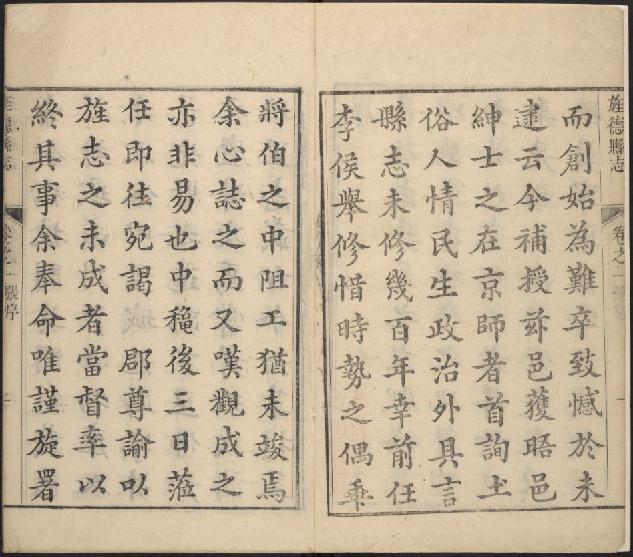 旌德縣志
卷之一
而創始為難卒致憾於未
逮云今補授茲邑獲晤邑
紳士之在京師者首詢土
俗人情民生政治外具言
縣志未修幾百年幸前任
李侯舉修惜時勢之偶乖
將伯之中阻工猶未竣焉
余心誌之而又嘆觀成之
亦非易也中穐後三日蒞
任即往宛謁 郡尊諭以
旌志之未成者當督率以
終其事余奉命唯謹旋署
張序
一